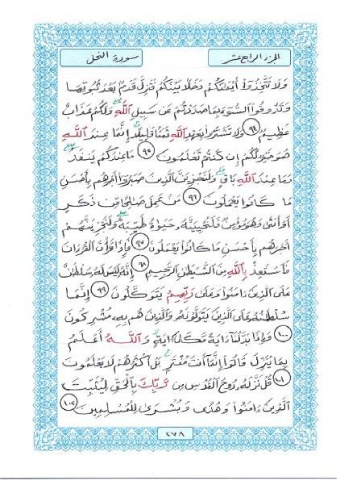 الجزء الرابع عشر
سورة النحل
وَلَا تَتَّخِذُوٓا۟ أَيْمَٰنَكُمْ دَخَلًۢا بَيْنَكُمْ فَتَزِلَّ قَدَمٌۢ بَعْدَ ثُبُوتِهَا
وَتَذُوقُوا۟ ٱلسُّوٓءَ بِمَا صَدَدتُّمْ عَن سَبِيلِ ٱللَّهِ وَلَكُمْ عَذَابٌ
عَظِيمٌ ٩٤ وَلَا تَشْتَرُوا۟ بِعَهْدِ ٱللَّهِ ثَمَنًا قَلِيلًا إِنَّمَا عِندَ ٱللَّهِ
هُوَ خَيْرٌ لَّكُمْ إِن كُنتُمْ تَعْلَمُونَ ٩٥ مَا عِندَكُمْ يَنفَدُ
وَمَا عِندَ ٱللَّهِ بَاقٍ وَلَنَجْزِيَنَّ ٱلَّذِينَ صَبَرُوٓا۟ أَجْرَهُم بِأَحْسَنِ
مَا كَانُوا۟ يَعْمَلُونَ ٩٦ مَنْ عَمِلَ صَٰلِحًا مِّن ذَكَرٍ
أَوْ أُنثَىٰ وَهُوَ مُؤْمِنٌ فَلَنُحْيِيَنَّهُۥ حَيَوٰةً طَيِّبَةً وَلَنَجْزِيَنَّهُمْ
أَجْرَهُم بِأَحْسَنِ مَا كَانُوا۟ يَعْمَلُونَ ٩٧ فَإِذَا قَرَأْتَ ٱلْقُرْءَانَ
فَٱسْتَعِذْ بِٱللَّهِ مِنَ ٱلشَّيْطَٰنِ ٱلرَّجِيمِ ٩٨ إِنَّهُۥ لَيْسَ لَهُۥ سُلْطَٰنٌ
عَلَى ٱلَّذِينَ ءَامَنُوا۟ وَعَلَىٰ رَبِّهِمْ يَتَوَكَّلُونَ ٩٩ إِنَّمَا
سُلْطَٰنُهُۥ عَلَى ٱلَّذِينَ يَتَوَلَّوْنَهُۥ وَٱلَّذِينَ هُم بِهِۦ مُشْرِكُونَ
١٠٠ وَإِذَا بَدَّلْنَآ ءَايَةً مَّكَانَ ءَايَةٍ وَٱللَّهُ أَعْلَمُ
بِمَا يُنَزِّلُ قَالُوٓا۟ إِنَّمَآ أَنتَ مُفْتَرٍۭ بَلْ أَكْثَرُهُمْ لَا يَعْلَمُونَ
١٠١ قُلْ نَزَّلَهُۥ رُوحُ ٱلْقُدُسِ مِن رَّبِّكَ بِٱلْحَقِّ لِيُثَبِّتَ
ٱلَّذِينَ ءَامَنُوا۟ وَهُدًى وَبُشْرَىٰ لِلْمُسْلِمِينَ ١٠٢
٢٧٨